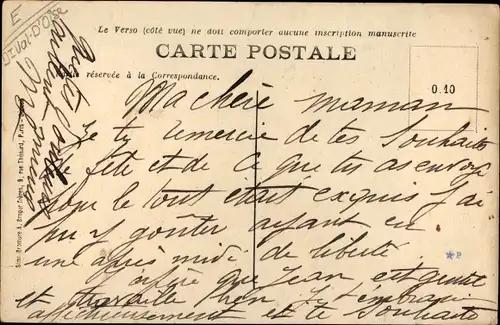 E
D: Val-D'Oise
Le Verso (côté vue) ne doit comporter aucune inscription manuscrite
CARTE POSTALE
réservée à la Correspondance.
0.10
Ma chère maman
Je te remercie de tes souhaits
fête et de ce que tu as envoyé
que le tout était exquis j'ai
pu y goûter ayant eu
une après midi de liberté
que Jean est gentil
et travaille bien Je t'embrasse
affectueusement et te souhaite
*P